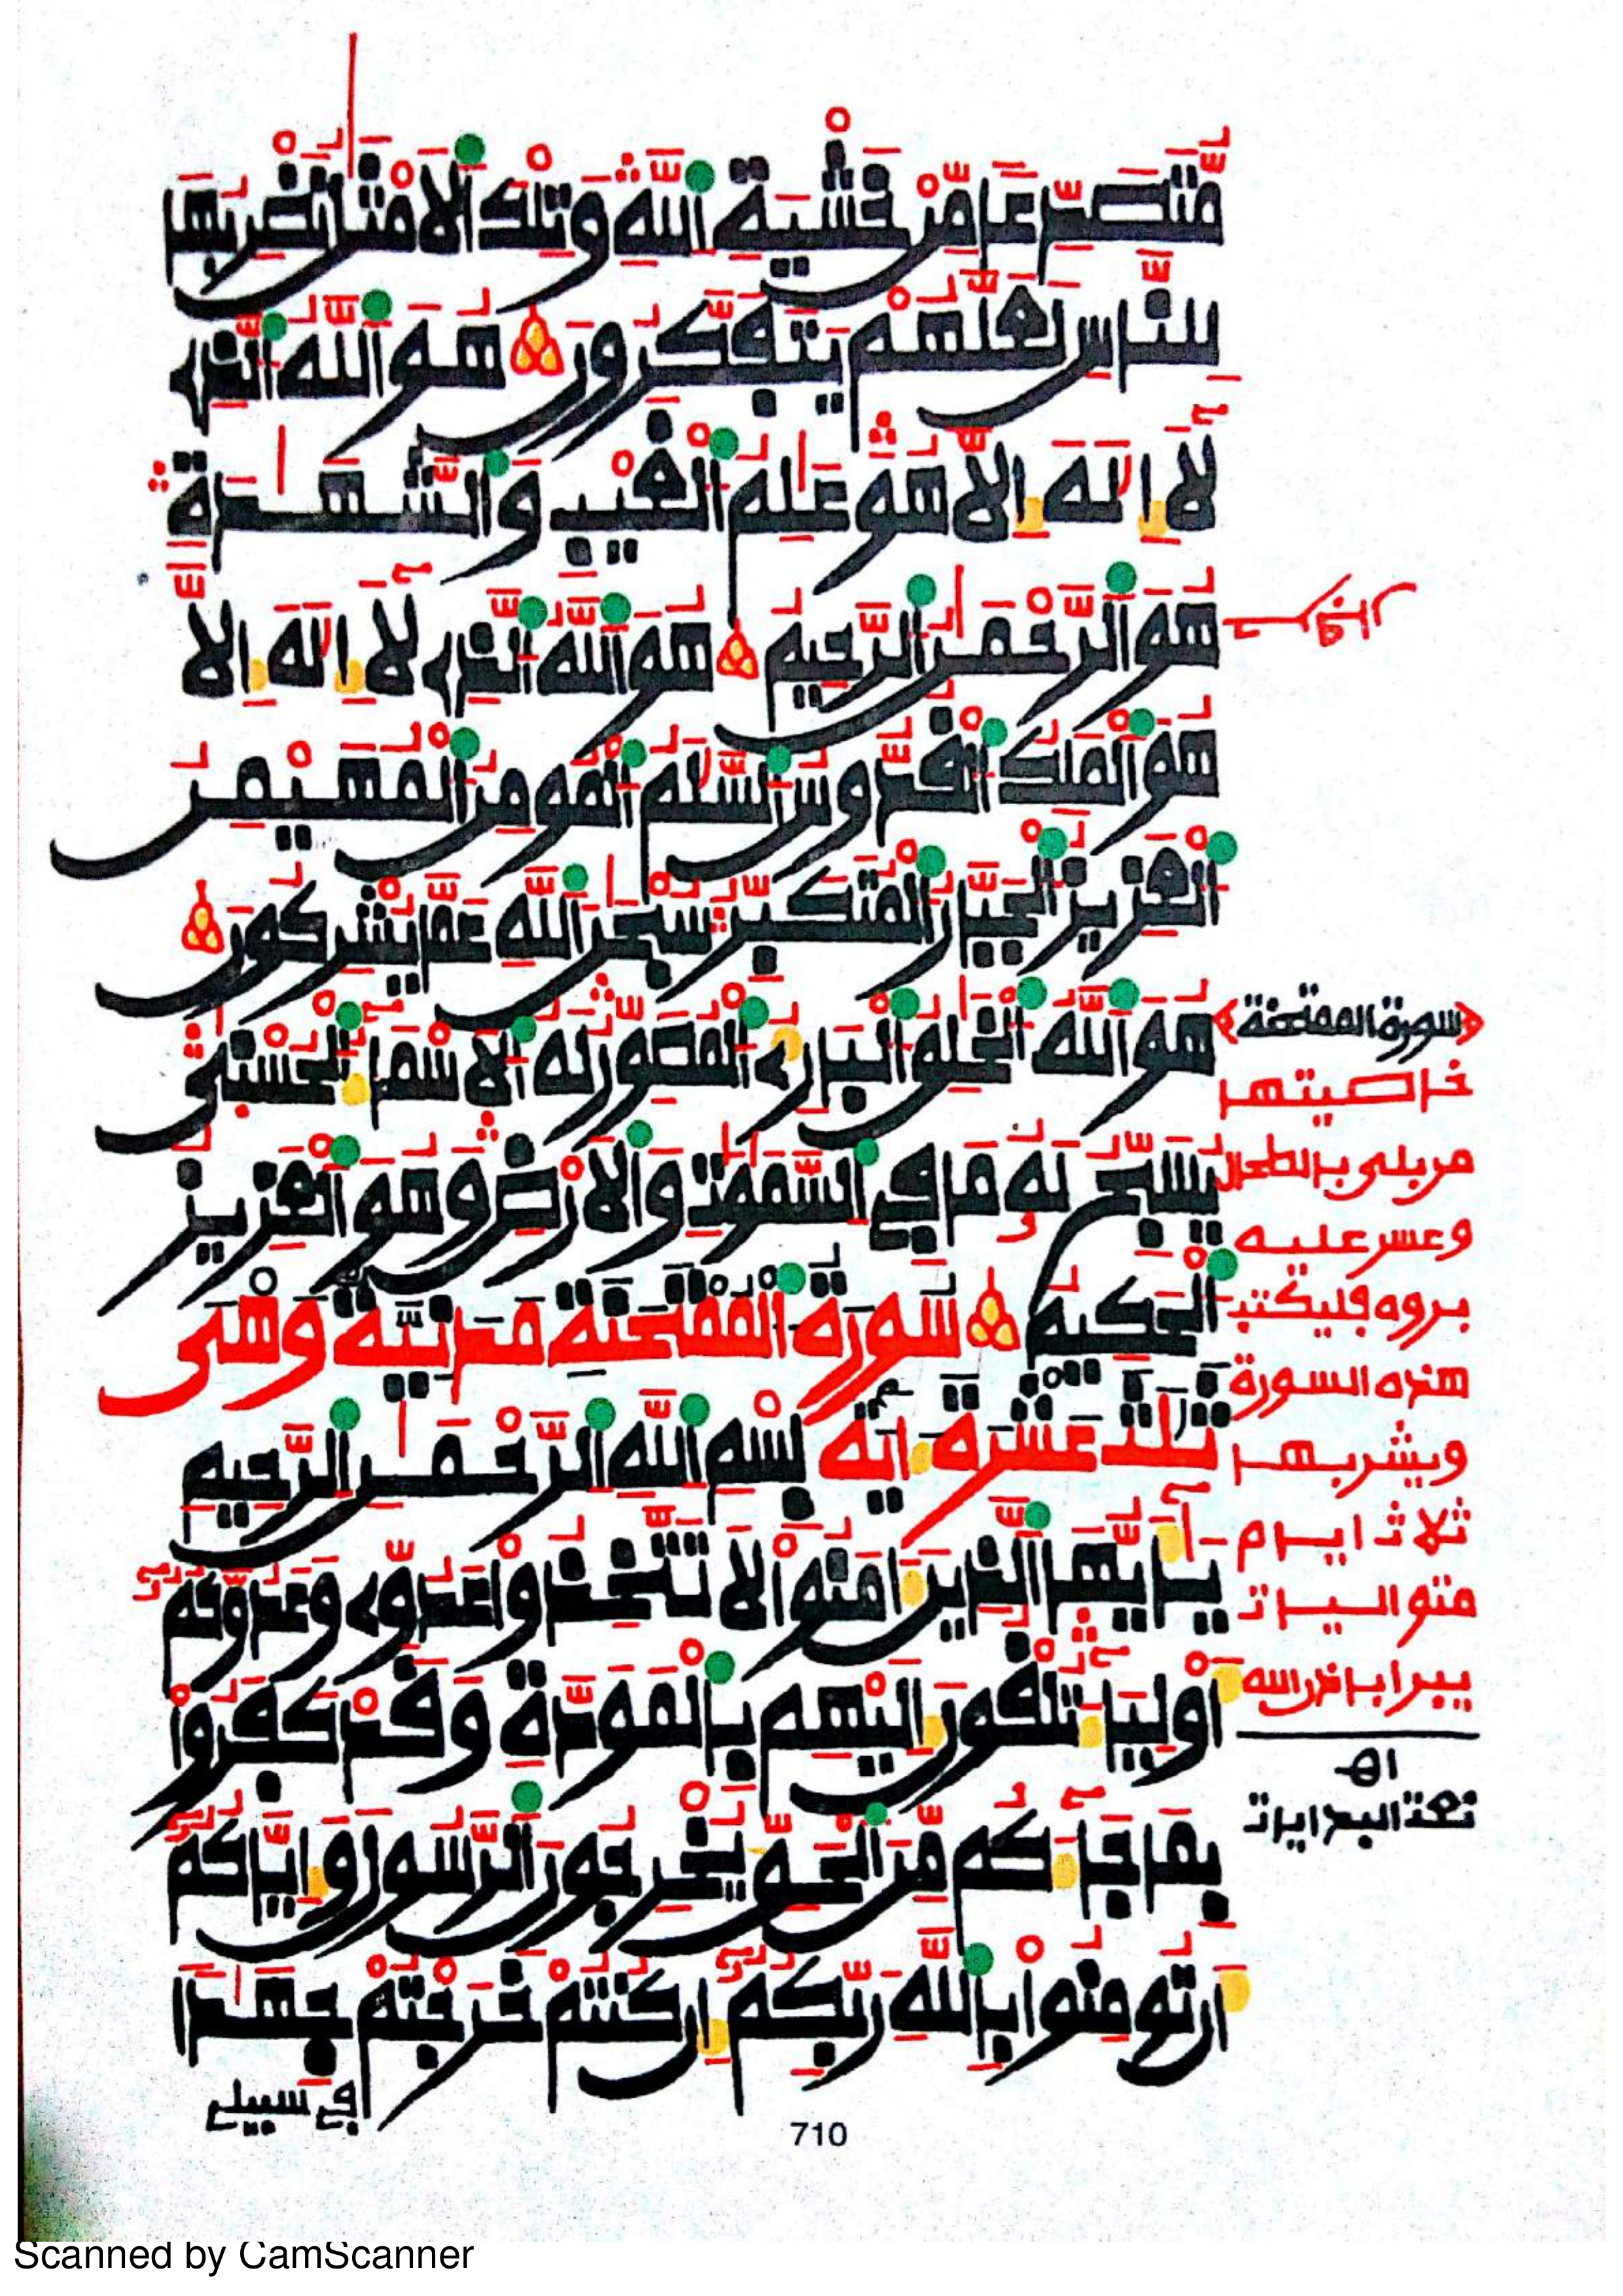 مُّتَصَدِّعاً مِّنْ خَشْيَةِ اِ۬للَّهِ وَتِلْكَ اَ۬لَامْثَٰلُ نَضْرِبُهَا
لِلنَّاسِ لَعَلَّهُمْ يَتَفَكَّرُونَ هُوَ اَ۬للَّهُ اُ۬لذِے
لَآ إِلَٰهَ إِلَّا هُوَ عَٰلِمُ اُ۬لْغَيْبِ وَالشَّهَٰدَةِ
هُوَ اَ۬لرَّحْمَٰنُ اُ۬لرَّحِيمُ هُوَ اَ۬للَّهُ اُ۬لذِے لَآ إِلَٰهَ إِلَّا
هُوَ اَ۬لْمَلِكُ اُ۬لْقُدُّوسُ اُ۬لسَّلَٰمُ اُ۬لْمُومِنُ اُ۬لْمُهَيْمِنُ
اُ۬لْعَزِيزُ اُ۬لْجَبَّارُ اُ۬لْمُتَكَبِّرُ سُبْحَٰنَ اَ۬للَّهِ عَمَّا يُشْرِكُونَ
هُوَ اَ۬للَّهُ اُ۬لْخَٰلِقُ اُ۬لْبَارِئُ اُ۬لْمُصَوِّرُ لَهُ اُ۬لَاسْمَآءُ اُ۬لْحُسْنَىٰ
يُسَبِّحُ لَهُۥ مَا فِے اِ۬لسَّمَٰوَٰتِ وَالَارْضِ وَهُوَ اَ۬لْعَزِيزُ
اُ۬لْحَكِيمُ سُورَةُ اُ۬لْمُمْتَحَنَةِ مَدَنِيَّةٌ وَهْىَ
ثَلَٰثَ عَشْرَةَ ءَايَةً بِسْمِ اِ۬للَّهِ اِ۬لرَّحْمَٰنِ اِ۬لرَّحِيمِ
يَٰٓأَيُّهَا اَ۬لذِينَ ءَامَنُواْ لَا تَتَّخِذُواْ عَدُوِّے وَعَدُوَّكُمُۥٓ
أَوْلِيَآءَ تُلْقُونَ إِلَيْهِم بِالْمَوَدَّةِ وَقَدْ كَفَرُواْ
بِمَا جَآءَكُم مِّنَ اَ۬لْحَقِّ يُخْرِجُونَ اَ۬لرَّسُولَ وَإِيَّاكُمُۥٓ
أَن تُومِنُواْ بِاللَّهِ رَبِّكُمُۥٓ إِن كُنتُمْ خَرَجْتُمْ جِهَٰداً
فے سبيلے
سورة الممتحنة
خاصيتها
من بلى بالطحال
وعسر عليه
بروه فليكتب
هذه السورة
ويشربها
ثلاثة ايام
متواليات
يبرا باذن الله
اهـ
710
Scanned by CamScanner